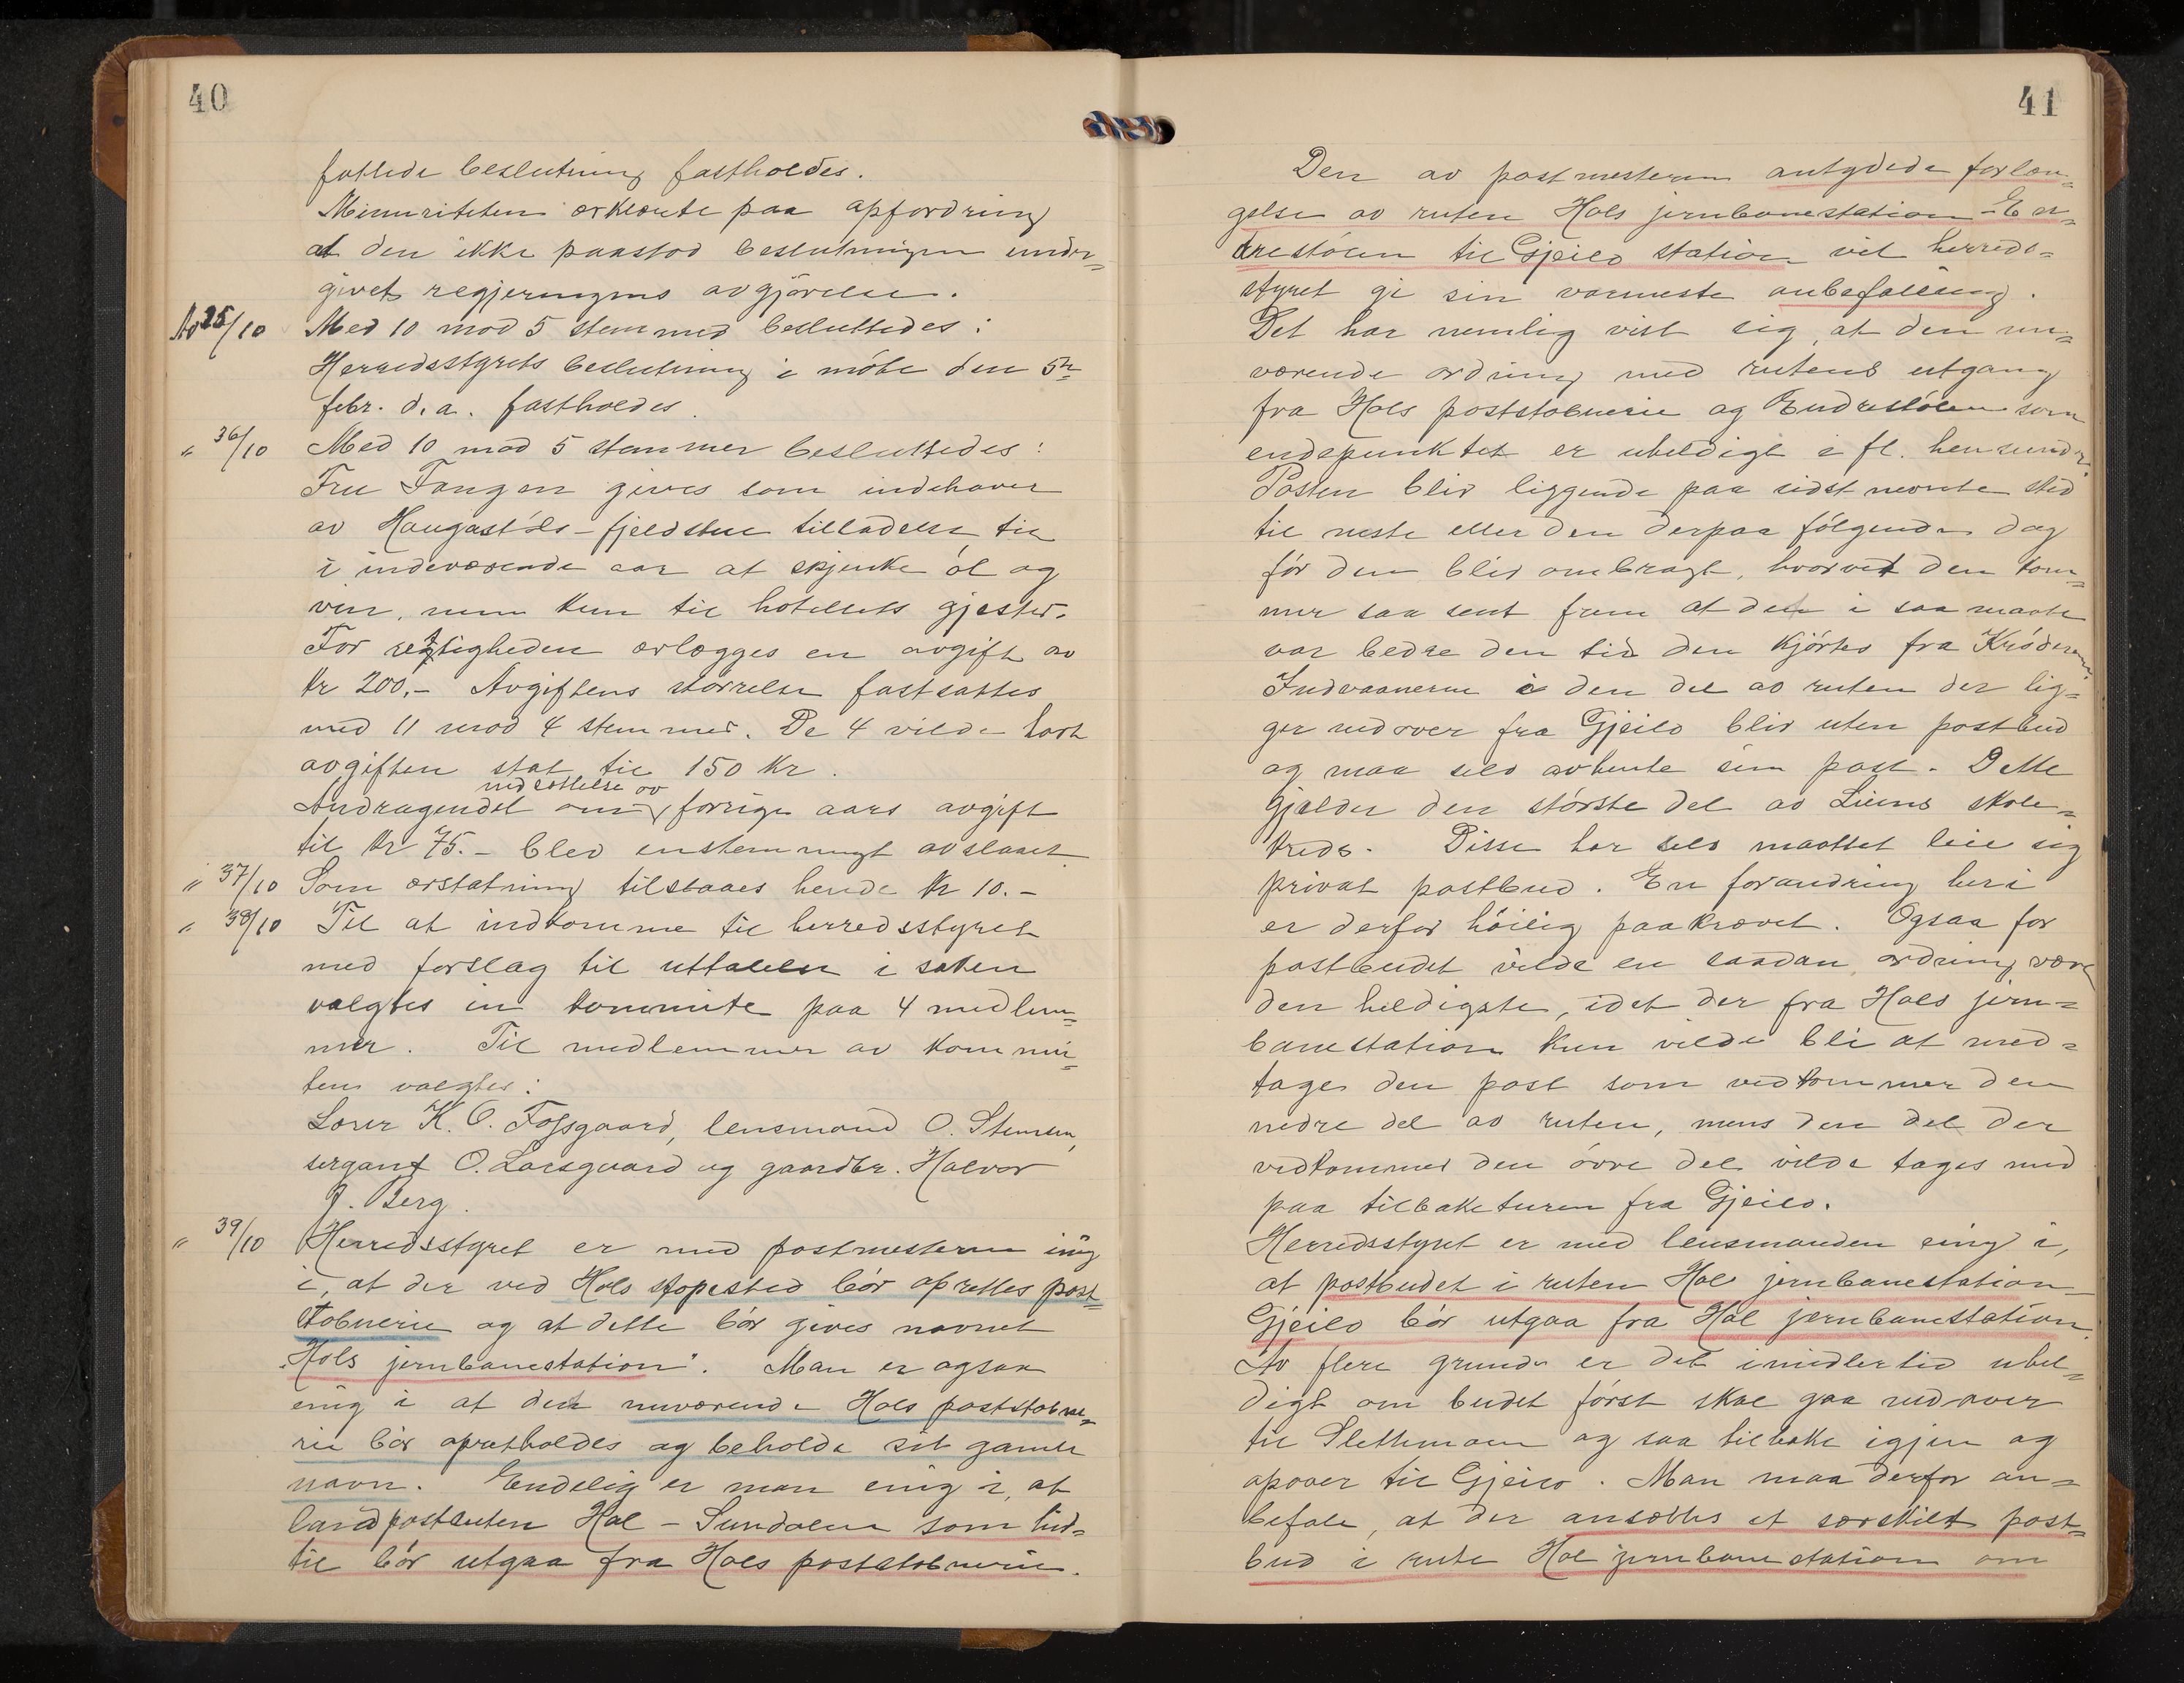 40
fattede beslutning fastholdes.
Minoriteten erklærte paa opfordring
at den ikke paastod beslutningen under=
givet regjeringens avgjörelse.
No 35/10 Med 10 mod 5 stemmer besluttedes:
Herredsstyrets beslutning i möte den 5te
febr. d. a. fastholdes.
" 36/10 Med 10 mod 5 stemmer besluttedes:
Fru Fangen gives som indehaver
av Haugastöls-fjeldstue tilladelse til
i indeværende aar at skjenke öl og
vin, men kun til hotellets gjester.
For rettigheden erlægges en avgift av
kr 200.- Avgiftens störrelse fastsattes
med 11 mod 4 stemmer. De 4 vilde havt
avgiften sat til 150 kr.
nedsættelse av
Andragendet om forrige aars avgift
til kr 75.- blev enstemmigt avslaaet
" 37/10 Som erstatning tilstaaes hende kr 10.-
" 38/10 Til at indkomme til herredsstyret
med forslag til uttalelse i saken
valgtes en kommite paa 4 medlem=
mer. Til medlemmer av kommi=
teen valgtes:
Lærer K. O. Fossgaard, lensmand O. Stensen,
sergant O. Larsgaard og gaardbr. Halvor
J. Berg.
" 39/10 Herredsstyret er med postmesteren enig
i, at der ved Hols stopested bör oprettes post=
aabneri og at dette bör gives navnet
"Hols jernbanestation". Man er ogsaa
enig i at det nuværende Hols poststobne=
rie bör opretholdes og beholde sit gamle
navn. Endelig er man enig i, at
landpostruten Hol - Sundalen som hid=
til bör utgaa fra Hols poststobnerie.
41
Den av postmesteren antydede forlæn=
gelse av ruten Hols jernbanestation - En=
drestölen til Gjeilo station vil herreds=
styret gi sin varmeste anbefaling.
Det har nemlig vist sig, at den nu=
værende ordning med rutens utgang
fra Hols poststobnerie og Endrestölen som
endepunktet er uheldigt i fl. henseender.
Posten blir liggende paa sidst nevnte sted
til neste eller den derpaa fölgende dag
för den blir ombragt, hvorved den kom=
mer saa sent frem at det i saa maate
var bedre den tid den kjörtes fra Kröderen.
Indvaanerne i den del av ruten der lig=
ger nedover fra Gjeilo blir uten postbud
og maa selv avhente sin post. Dette
gjælder den störste del av Liens skole=
kreds. Disse har selv maattet leie sig
privat postbud. En forandring heri
er derfor höilig paakrævet. Ogsaa for
postbudet vilde en saadan ordning være
den heldigste, idet der fra Hols jern=
banestation kun vilde bli at med=
tage den post som vedkommer den
nedre del av ruten, mens den del der
vedkommer den övre del vilde tages med
paa tilbaketuren fra Gjeilo.
Herredsstyret er med lensmanden enig i,
at postbudet i ruten Hol jernbanestation -
Gjeilo bör utgaa fra Hol jernbanestation.
Av flere grunde er det imidlertid uhel=
digt om budet först skal gaa nedover
til Slettemoen og saa tilbake igjen og
opover til Gjeilo. Man maa derfor an=
befale, at der ansættes et særskilt post=
bud i rute Hol jernbanestation om